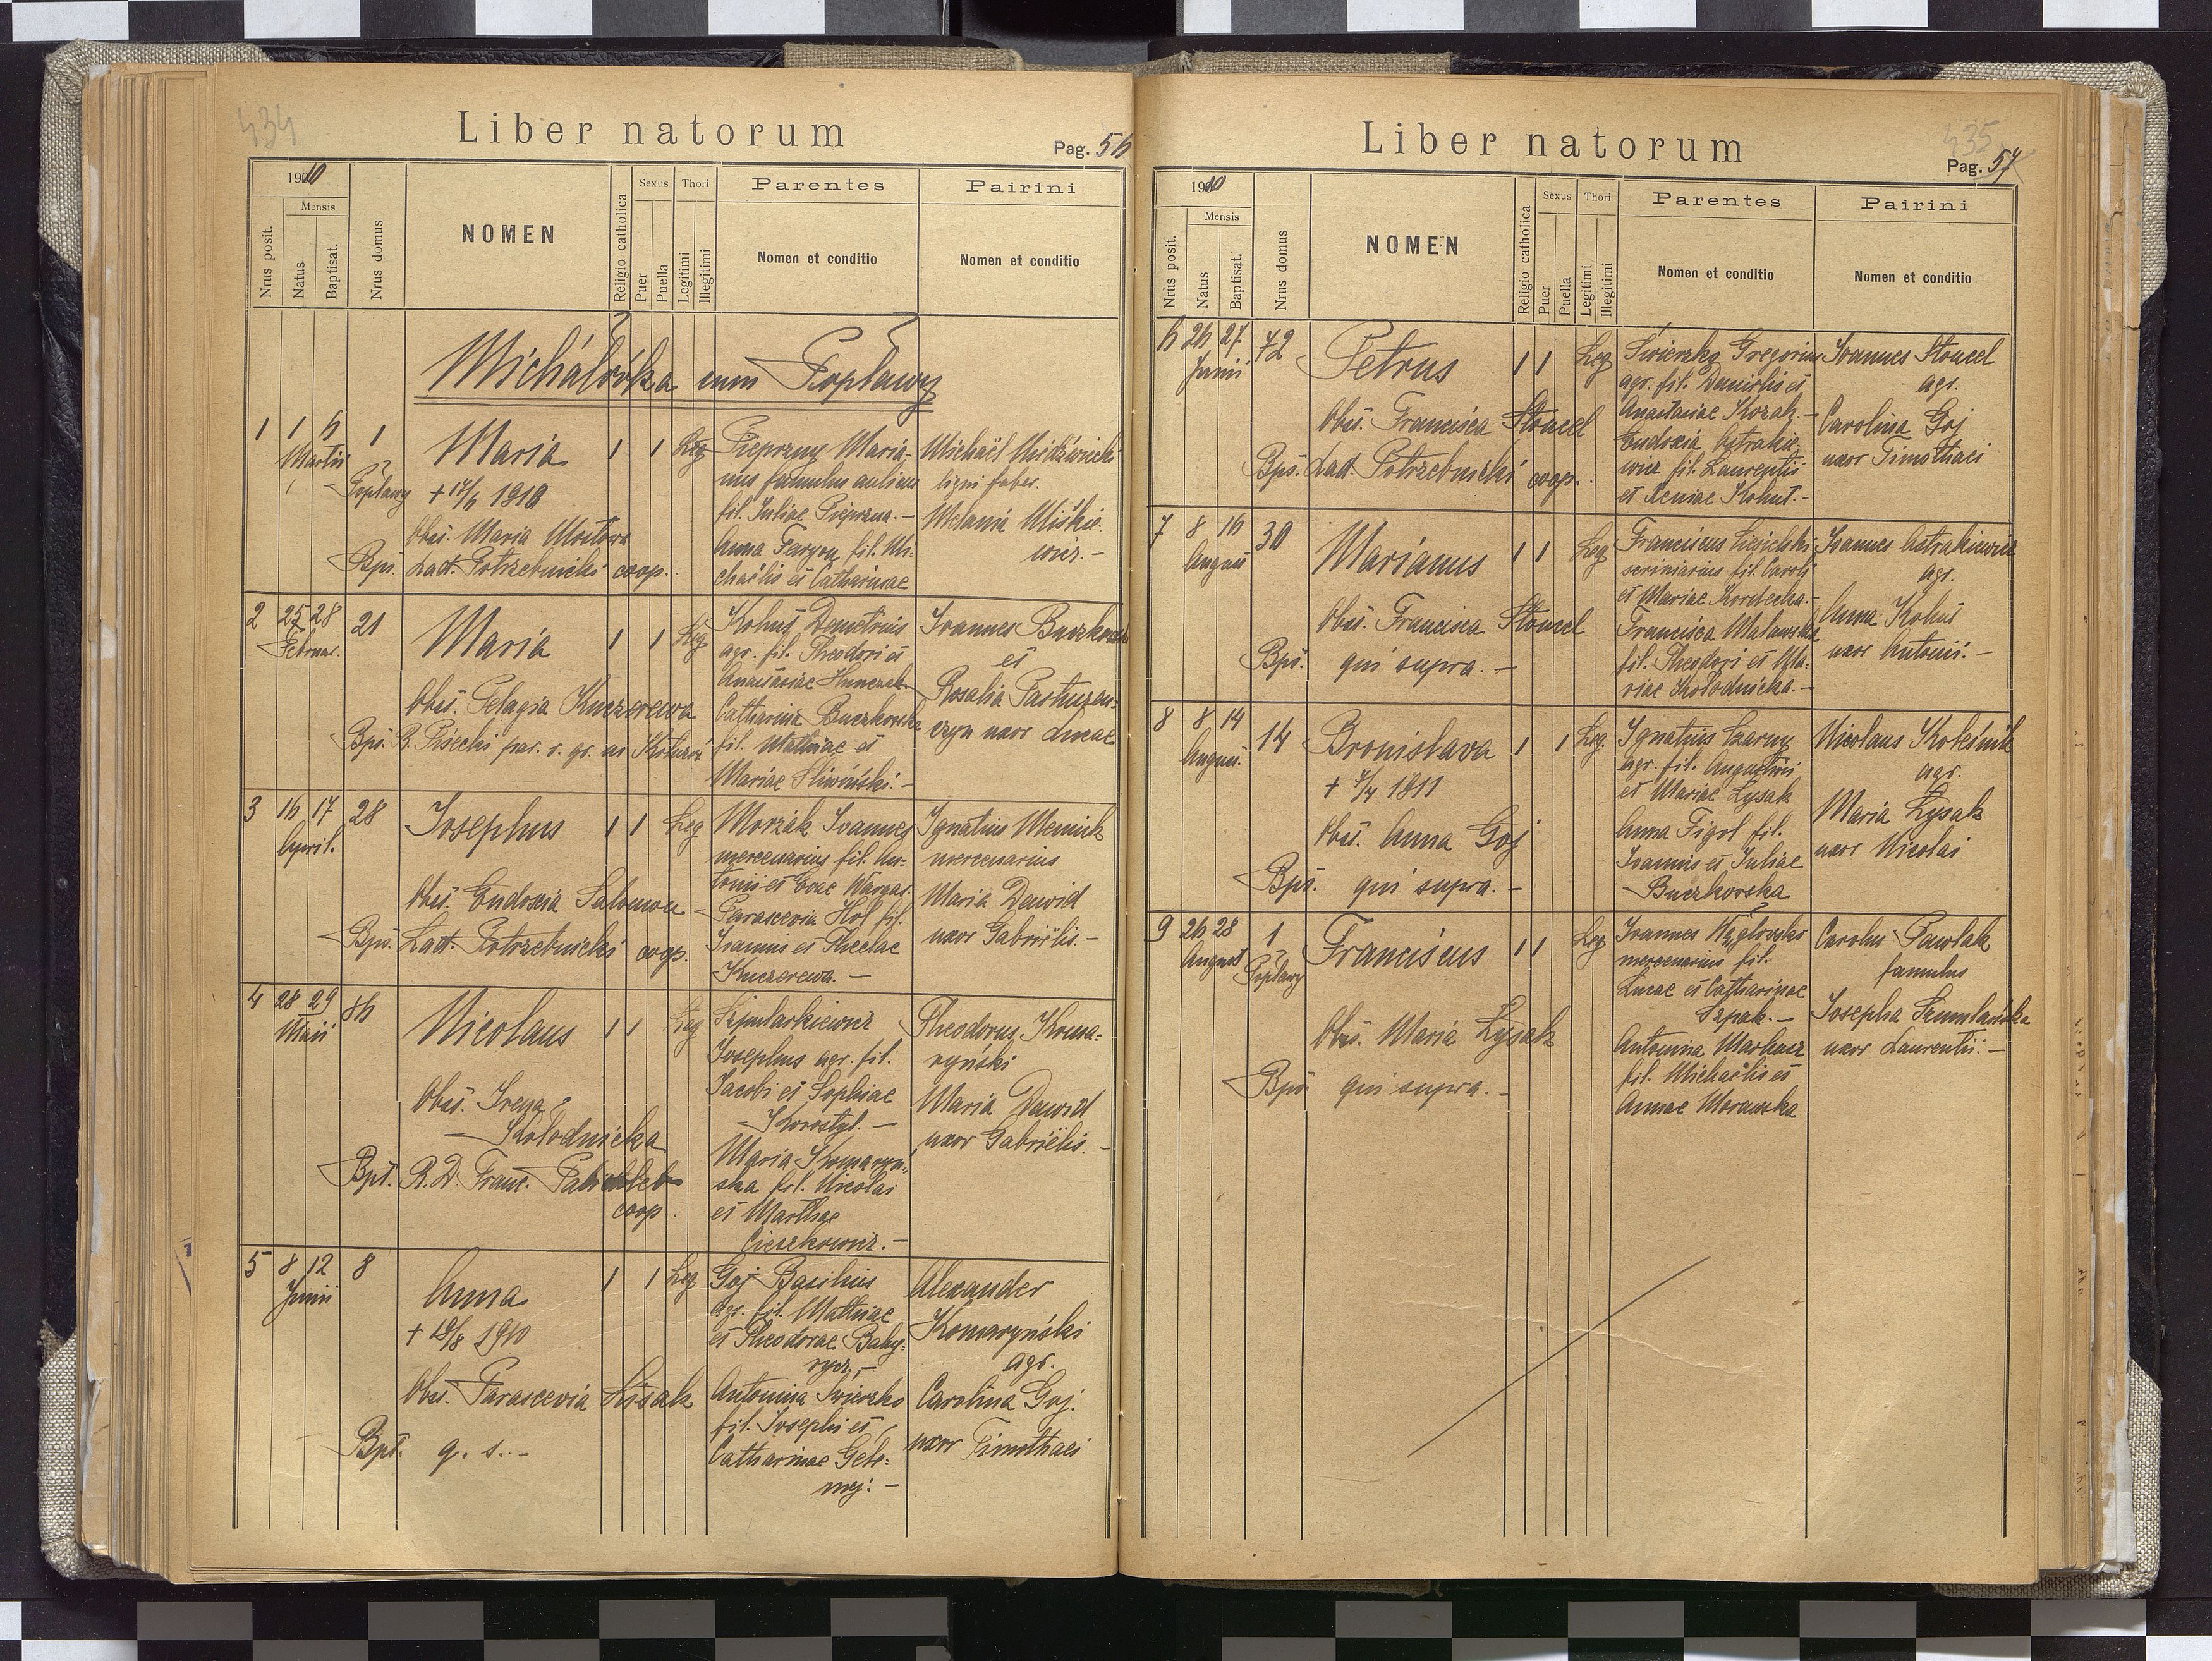 434
Liber natorum
Pag. 56
1910
Nrus posit.
Mensis
Natus
Baptisat.
Nrus domus
NOMEN
Religio catholica
Sexus
Puer
Puella
Thori
Legitimi
Illegitimi
Parentes
Nomen et conditio
Pairini
Nomen et conditio
Michałówka cum Popławy
1 1 6 Martii
1 Popławy
Maria
+ 17/6 1910
Obst. Maria Mostowa
Bpt. Lad. Potrzebnicki coop.
1 1 Leg
Pieprzny Maria-
nus famulus aulicus
fil. Juliae Pieprzna. -
Anna Faryon fil. Mi-
chaëlis et Catharinae
Michaël Niedźwiecki
ligni faber.
Melania Miśkie-
wicz. -
2 25 28 Februar.
21
Maria
Obst. Pelagia Kuczerewa
Bpt. R. Pisecki par. r. gr. in Kotuzów
1 1 Leg
Kohut Demetrius
agr. fil. Theodori et
Anastasiae Hunczak
Catharina Buczkowska
fil. Mathiae et
Mariae Śliwiński. -
Joannes Buczkowski
et
Rosalia Pastuszen-
czyn uxor Lucae
3 16 17 April.
28
Josephus
Obst. Eudoxia Salomon
Bpt. Lad. Potrzebnicki coop.
1 1 Leg
Morżak Joannes
mercenarius fil. An-
tonii et Evae Wargas.
Parascevia Hol fil.
Joannis et Theclae
Kuczerewa. -
Ignatius Memik
mercenarius
Maria Dawid
uxor Gabriëlis. -
4 28 29 Maii
86
Nicolaus
Obst. Irena
Kołodnicka
Bpt. R. D. Franc.
coop.
1 1 Leg
Szjmlarkiewicz
Josephus agr. fil.
Jacobi et Sophiae
Korostyl. -
Maria Komaryń-
ska fil. Nicolai
et Marthae
Cieszkowicz. -
Theodorus Koma-
ryński
Maria Dawid
uxor Gabriëlis. -
5 8 12 Junii
8
Anna
+ 18/8 1910
Obst. Parascevia Lisak
Bpt. q. s. -
1 1 Leg
Goj Basilius
agr. fil. Mathiae
et Theodorae Baby-
rycz, -
Antonina Świerzko
fil. Josephi et
Catharinae Gele-
mej. -
Alexander
Komaryński
agr.
Carolina Goj.
uxor Timothaei
435
Liber natorum
Pag. 57
1910
Nrus posit.
Mensis
Natus
Baptisat.
Nrus domus
NOMEN
Religio catholica
Sexus
Puer
Puella
Thori
Legitimi
Illegitimi
Parentes
Nomen et conditio
Pairini
Nomen et conditio
6 26 27 Junii
72
Petrus
Obst. Francisca Stoucel
Bpt. Lad. Potrzebnicki coop.
1 1 Leg
Świerzko Gregorius
agr. fil. Danielis et
Anastasiae Kozak. -
Eudoxia Astrakie-
wicz fil. Laurentii
et Xeniae Kohut. -
Joannes Stoucel
agr.
Carolina Goj
uxor Timothaei
7 8 16 August
30
Marianus
Obst. Francisca Stoucel
Bpt. qui supra. -
1 1 Leg
Franciscus Ciesielski
scriniarius fil. Caroli
et Mariae Kordecka. -
Francisca Malawska
fil. Theodori et Ma-
riae Kołodnicka. -
Joannes Astrakiewicz
agr.
Anna Kohut
uxor Antonii. -
8 8 14 August.
14
Bronislava
+ 7/4 1911
Obst. Anna Goj
Bpt. qui supra. -
1 1 Leg.
Ignatius Czarny
agr. fil. Augustini
et Mariae Łysak
Anna Figol fil.
Joannis et Juliae
- Buczkovska
Nicolaus Koleśnik
agr.
Maria Łysak
uxor Nicolai
9 26 28 August
1 Popławy
Franciscus
Obst. Maria Łysak
Bpt qui supra. -
1 1 Leg
Joannes Węglowski
mercenarius fil.
Lucae et Catharinae
Szpak. -
Antonina Markusz
fil. Michaëlis et
Annae Morawska
Carolus Pawlak
famulus
Josepha Szumlańska
uxor Laurentii. -